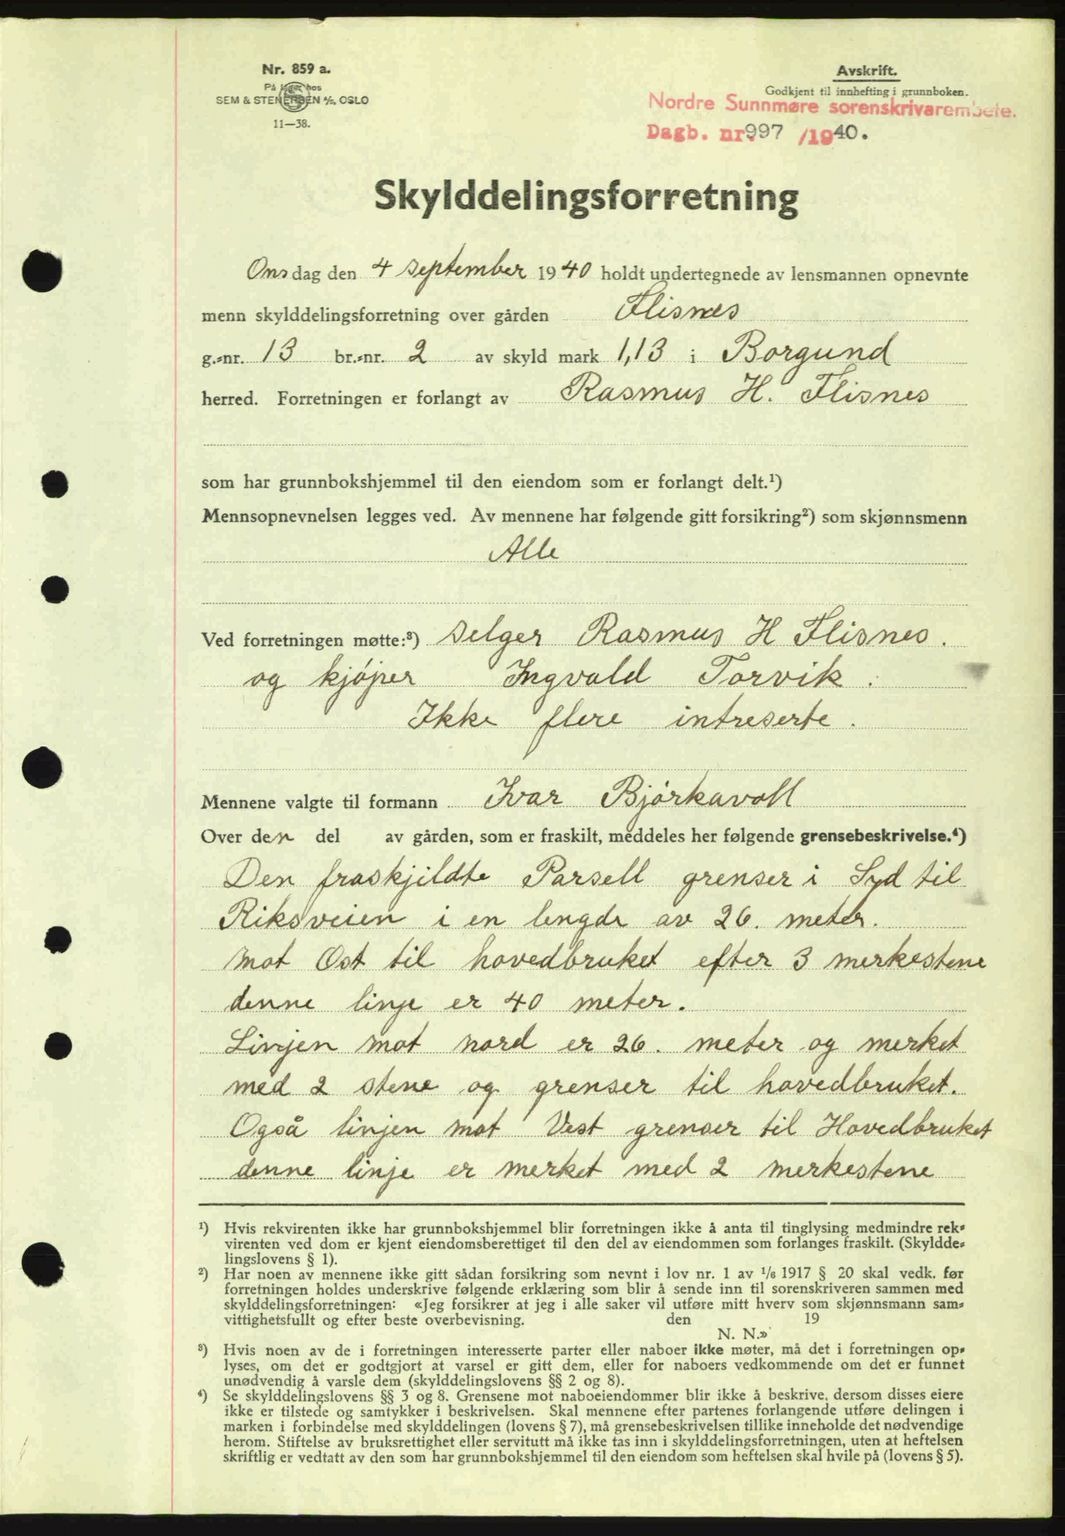 Nr. 859 a.
På lager hos
SEM & STENERSEN A/S, OSLO
11—38.
Avskrift.
Godkjent til innhefting i grunnboken.
Nordre Sunnmøre sorenskrivarembete.
Dagb. nr. 997 /1940.
Skylddelingsforretning
Onsdag den 4 september 1940 holdt undertegnede av lensmannen opnevnte
menn skylddelingsforretning over gården Flisnes
g.-nr. 13 br.-nr. 2 av skyld mark 1,13 i Borgund
herred. Forretningen er forlangt av Rasmus H. Flisnes
som har grunnbokshjemmel til den eiendom som er forlangt delt.¹)
Mennsopnevnelsen legges ved. Av mennene har følgende gitt forsikring²) som skjønnsmenn
Alle
Ved forretningen møtte:³) selger Rasmus H Flisnes.
og kjøper Ingvald Torvik.
Ikke flere intreserte.
Mennene valgte til formann Ivar Bjørkavoll
Over den del av gården, som er fraskilt, meddeles her følgende grensebeskrivelse.⁴)
Den fraskjildte Parsell grenser i Syd til
Riksveien i en lengde av 26. meter.
mot Øst til hovedbruket efter 3 merkestene
denne linje er 40 meter.
Linjen mot nord er 26. meter og merket
med 2 stene og grenser til hovedbruket.
Også linjen mot Vest grenser til Hovedbruket
denne linje er merket med 2 merkestene
¹) Hvis rekvirenten ikke har grunnbokshjemmel blir forretningen ikke å anta til tinglysing medmindre rek-
virenten ved dom er kjent eiendomsberettiget til den del av eiendommen som forlanges fraskilt. (Skyldde-
lingslovens § 1).
²) Har noen av mennene ikke gitt sådan forsikring som nevnt i lov nr. 1 av 1/6 1917 § 20 skal vedk. før
forretningen holdes underskrive følgende erklæring som blir å sende inn til sorenskriveren sammen med
skylddelingsforretningen: «Jeg forsikrer at jeg i alle saker vil utføre mitt hverv som skjønnsmann sam-
vittighetsfullt og efter beste overbevisning. den 19
N. N.»
³) Hvis noen av de i forretningen interesserte parter eller naboer ikke møter, må det i forretningen op-
lyses, om det er godtgjort at varsel er gitt dem, eller for naboers vedkommende om det er funnet
unødvendig å varsle dem (skylddelingslovens §§ 2 og 8).
⁴) Se skylddelingslovens §§ 3 og 8. Grensene mot naboeiendommer blir ikke å beskrive, dersom disses eiere
ikke er tilstede og samtykker i beskrivelsen. Skal mennene efter partenes forlangende utføre delingen i
marken i forbindelse med skylddelingen (lovens § 7), må grensebeskrivelsen tillike inneholde det nødvendige
herom. Stiftelse av bruksrettighet eller servitutt må ikke tas inn i skylddelingsforretningen, uten at heftelsen
skriftlig er vedtatt av den som har grunnbokshjemmel til den eiendom som heftelsen skal hvile på (lovens § 5).